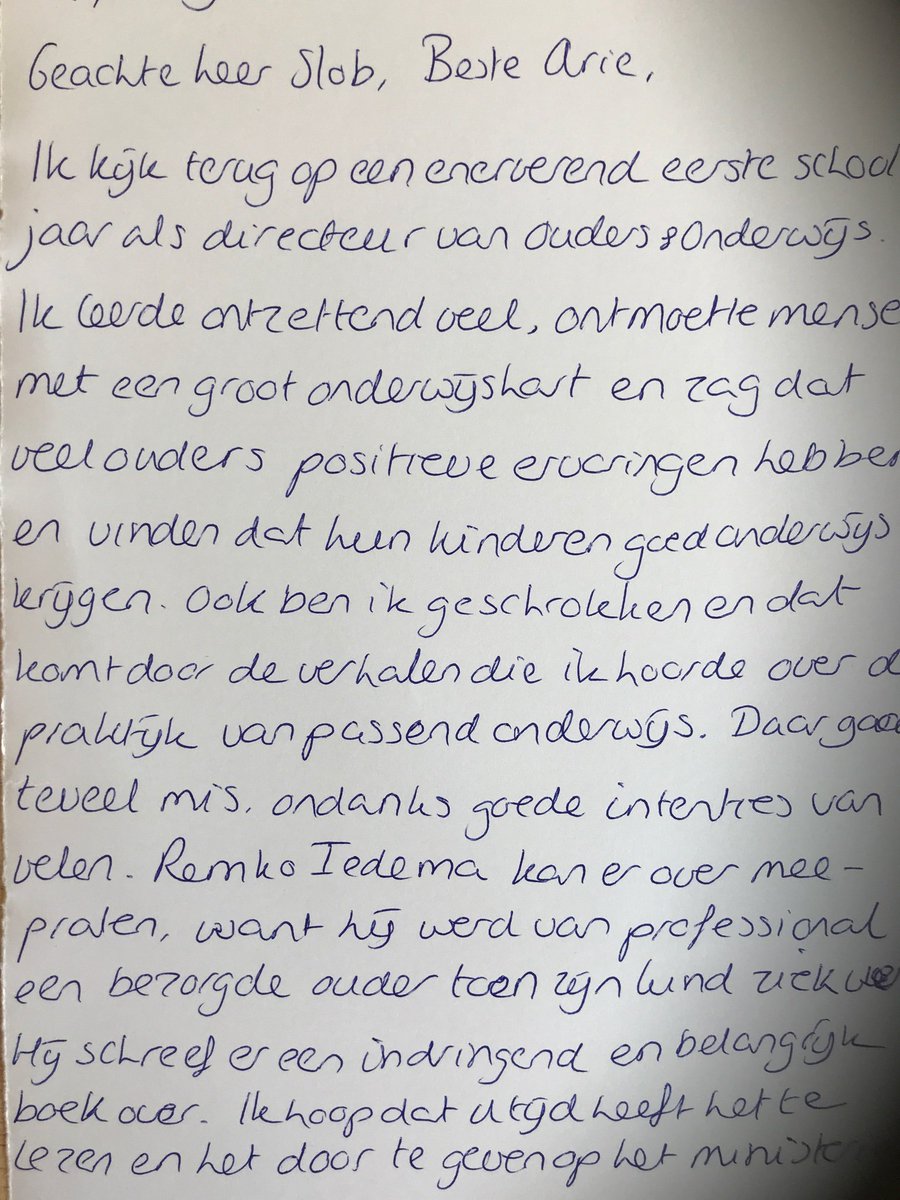 Geachte heer Slob, Beste Arie,
Ik kijk terug op een enerverend eerste school
jaar als directeur van Ouders & Onderwijs.
Ik leerde ontzettend veel, ontmoette mense
met een groot onderwijshart en zag dat
veel ouders positieve ervaringen hebben
en vinden dat hun kinderen goed onderwijs
krijgen. Ook ben ik geschrokken en dat
komt door de verhalen die ik hoorde over d
praktijk van passend onderwijs. Daar gaa
teveel mis, ondanks goede intenties van
velen. Remko Iedema kan er over mee-
praten, want hij werd van professional
een bezorgde ouder toen zijn kind ziek
Hij schreef er een indringend en belangrijk
boek over. Ik hoop dat u tijd heeft het te
lezen en het door te geven op het ministe